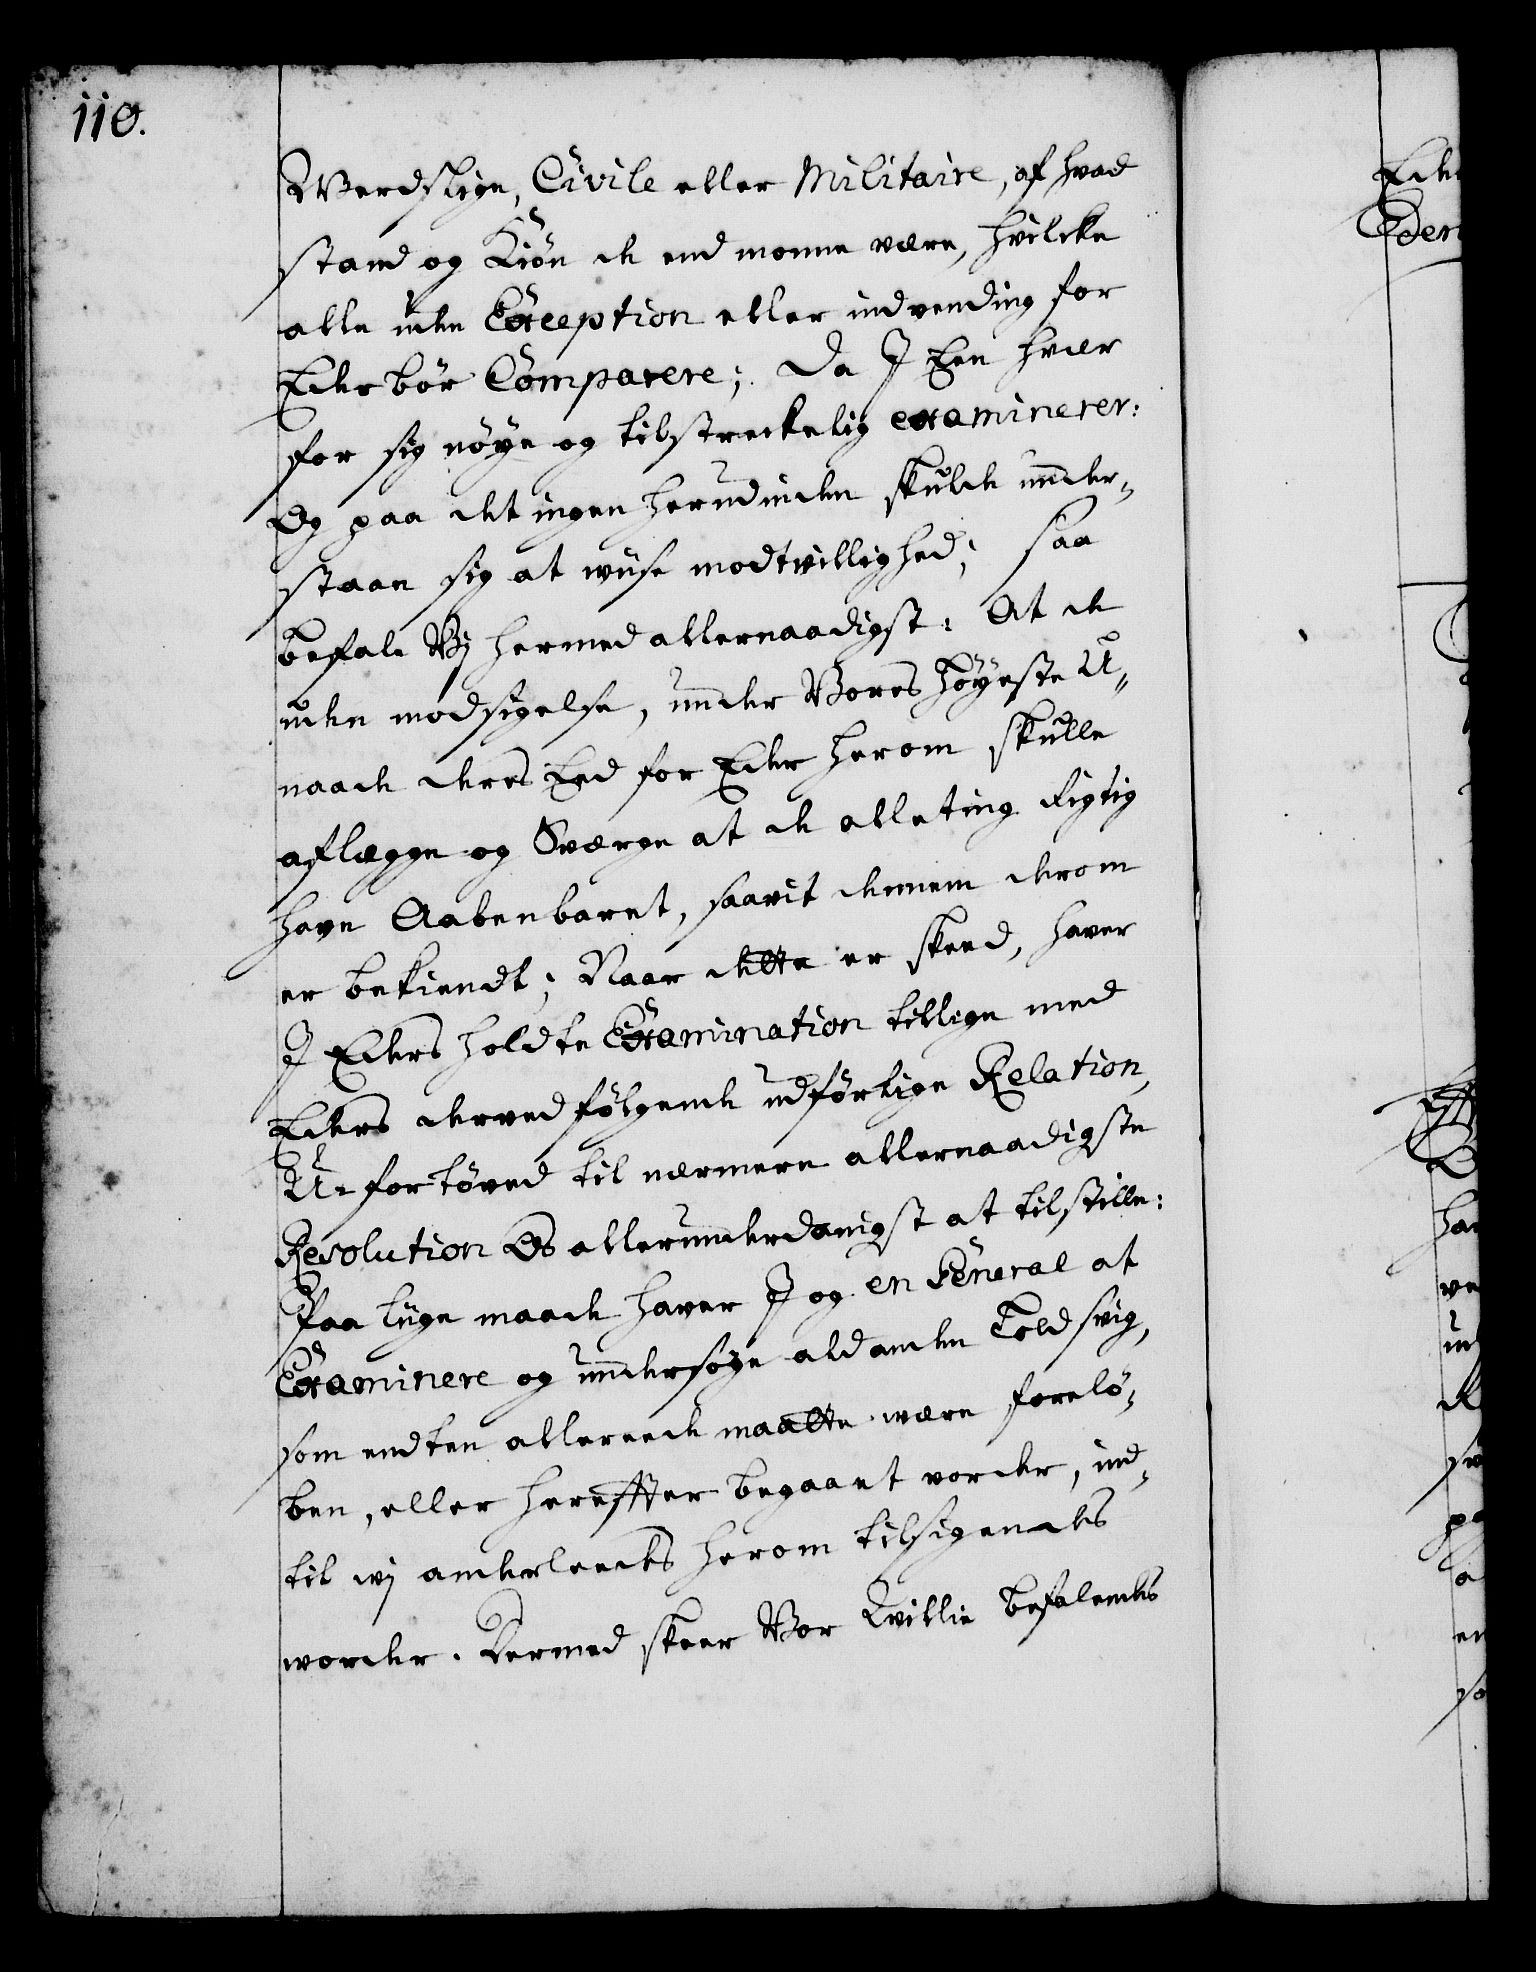 110.
Werdslige, Civile eller Militaire, af hvad
stand og Kiön de end monne være, hvilcke
alle uden Exception eller indvending for
Eder bör Comparere; Da J Een hvær
for sig nöye og tilstreckelig examinerer:
Og paa det ingen herudinden skulde under-
staae sig at wiise modtvillighed; saa
befale Wj hermed allernaadigst: At de
uden modsigelse, under Vores höyeste U-
naade deres Eed for Eder herom skulle
aflægge og Sværge at de alleting Rigtig
have Aabenbaret, saavit dennem derom
er bekiendt; Naar dette er skeed, haver
J Eders holdte Examination tillige med
Eders derved fölgende udförlige Relation,
U-fortöved til nærmere allernaadigste
Resolution Os allerunderdanigst at tilstille:
Paa liige maade haver J og en General at
Examinere og undersöge ald anden Told svig,
som endten allereede maatte være forelö-
ben, eller hereffter begaaet vorder, ind-
til wj anderleedes herom tilsigendes
worder. Dermed skeer Vor Willie befalendes